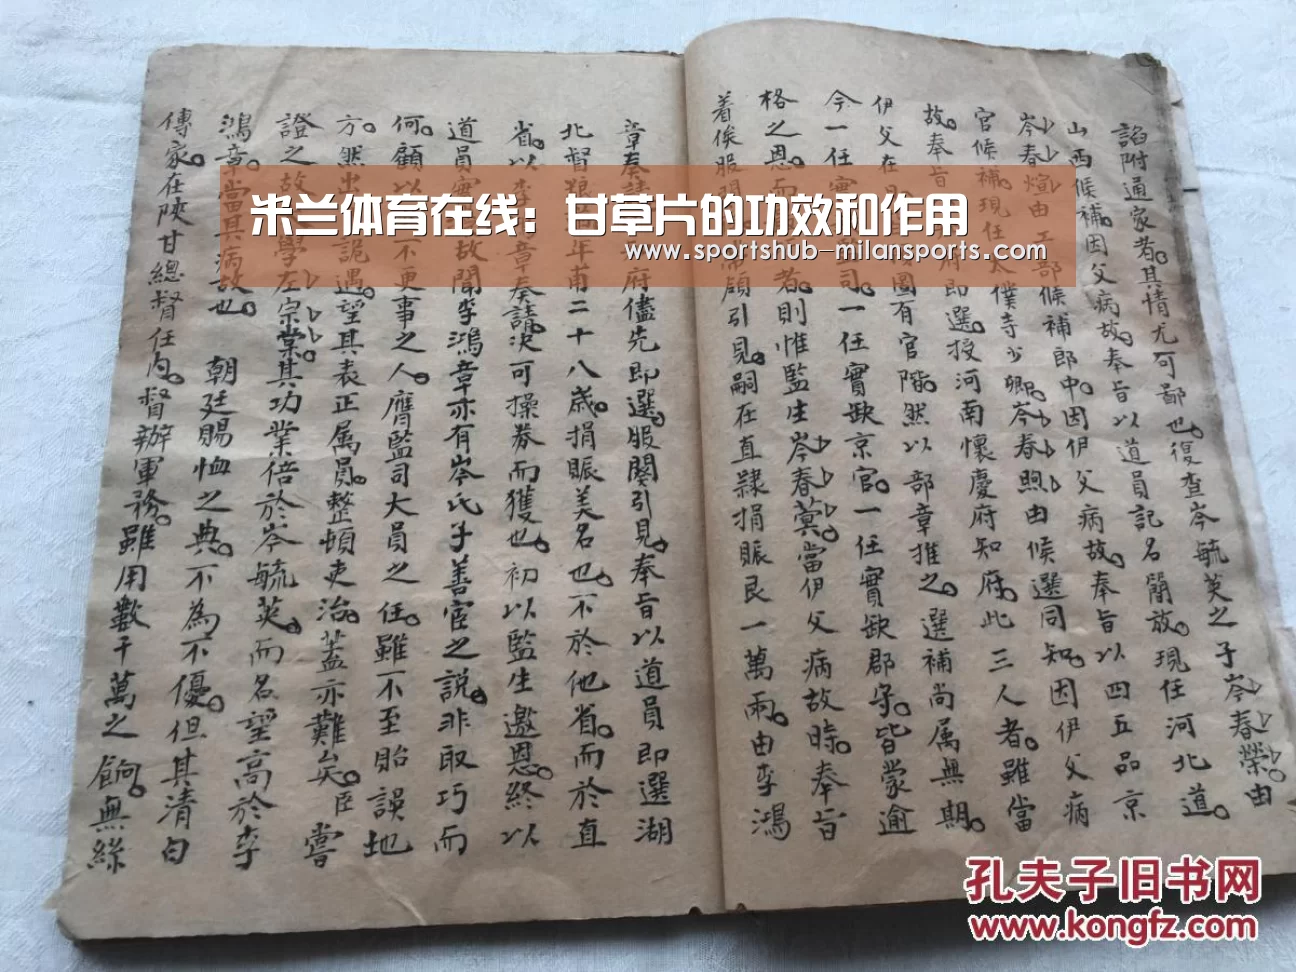 諂附通家者。其情尤可鄙也。復查岑毓英之子岑春榮。由
山西候補。因父病故。奉旨以道員記名簡放。現任河北道。
岑春煊由工部候補郎中。因伊父病故。奉旨以四五品京
官候補。現任太僕寺少卿。岑春煦由候選同知。因伊父病
故。奉旨 府即選。授河南懷慶府知府。此三人者。雖當
伊父在 圖有官階。然以部章推之。選補尚属無期。
今一任實 司。一任實缺京官。一任實缺郡守。皆蒙逾
格之恩。而 者。則惟監生岑春蓂。當伊父病故時。奉旨
着俟服闋 帶領引見。嗣在直隸捐賑艮一萬兩。由李鴻
章奏請 府儘先即選。服闋引見。奉旨以道員即選湖
北督粮 年甫二十八歲。捐賑美名也。不於他省。而於直
省。以李 章奏請。次可操券而獲也。初以監生邀恩。終以
道員實 故聞李鴻章亦有岑氏子善宦之說。非取巧而
何。顧以 不更事之人。膺監司大員之任。雖不至貽誤地
方。然出 詭遇。望其表正属員。整頓吏治。蓋亦難矣。臣嘗
證之故 學左宗棠。其功業倍於岑毓英。而名望高於李
鴻章。當其病故也。 朝廷賜恤之典。不為不優。但其清白
傳家。在陝甘總督任内。督辦軍務。雖用數千萬之餉。無絲
米兰体育在线：甘草片的功效和作用
www.sportshub-milansports.com
孔夫子旧书网
www.kongfz.com